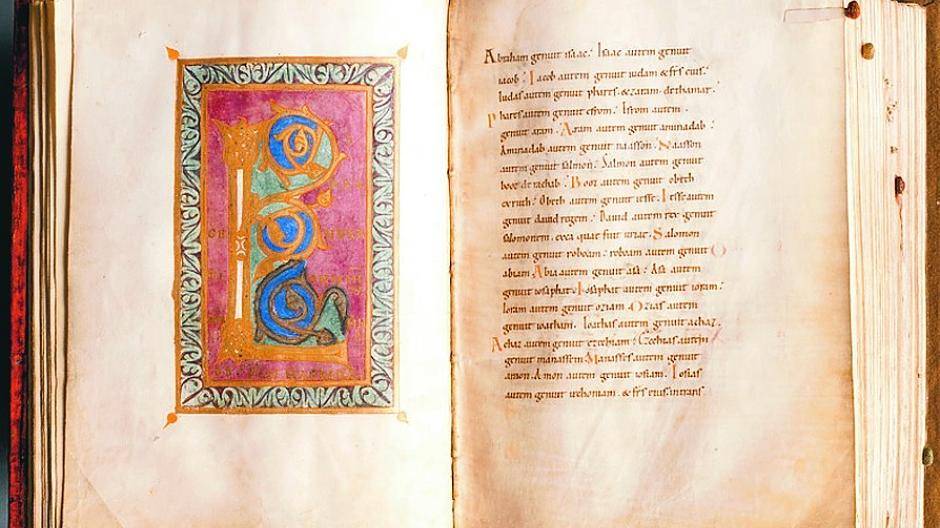 Abraham genuit isaac. Isaac autem genuit
iacob. Iacob autem genuit iudam & frs eius.
Iudas autem genuit phares. & zaram. de thamar.
Phares autem genuit esrom. Esrom autem
genuit aram. Aram autem aminadab.
Aminadab autem genuit naasson. Naasson
autem genuit salmon. Salmon autem genuit
booz de rachab. Booz autem genuit obeth
ex ruth. Obeth autem genuit iesse. Iesse autem
genuit david regem. David autem rex genuit
salomonem. ex ea quae fuit uriae. Salomon
autem genuit roboam. roboam autem genuit
abiam. Abia autem genuit asa. Asa autem
genuit iosaphat. Iosaphat autem genuit ioram.
Ioram autem genuit oziam. Ozias autem
genuit ioatham. Ioathas autem genuit achaz.
Achaz autem genuit ezechiam. Ezechias autem
genuit manassem. Manasses autem genuit
amon. Amon autem genuit iosiam. Iosias
autem genuit iechoniam. & frs eius in trans